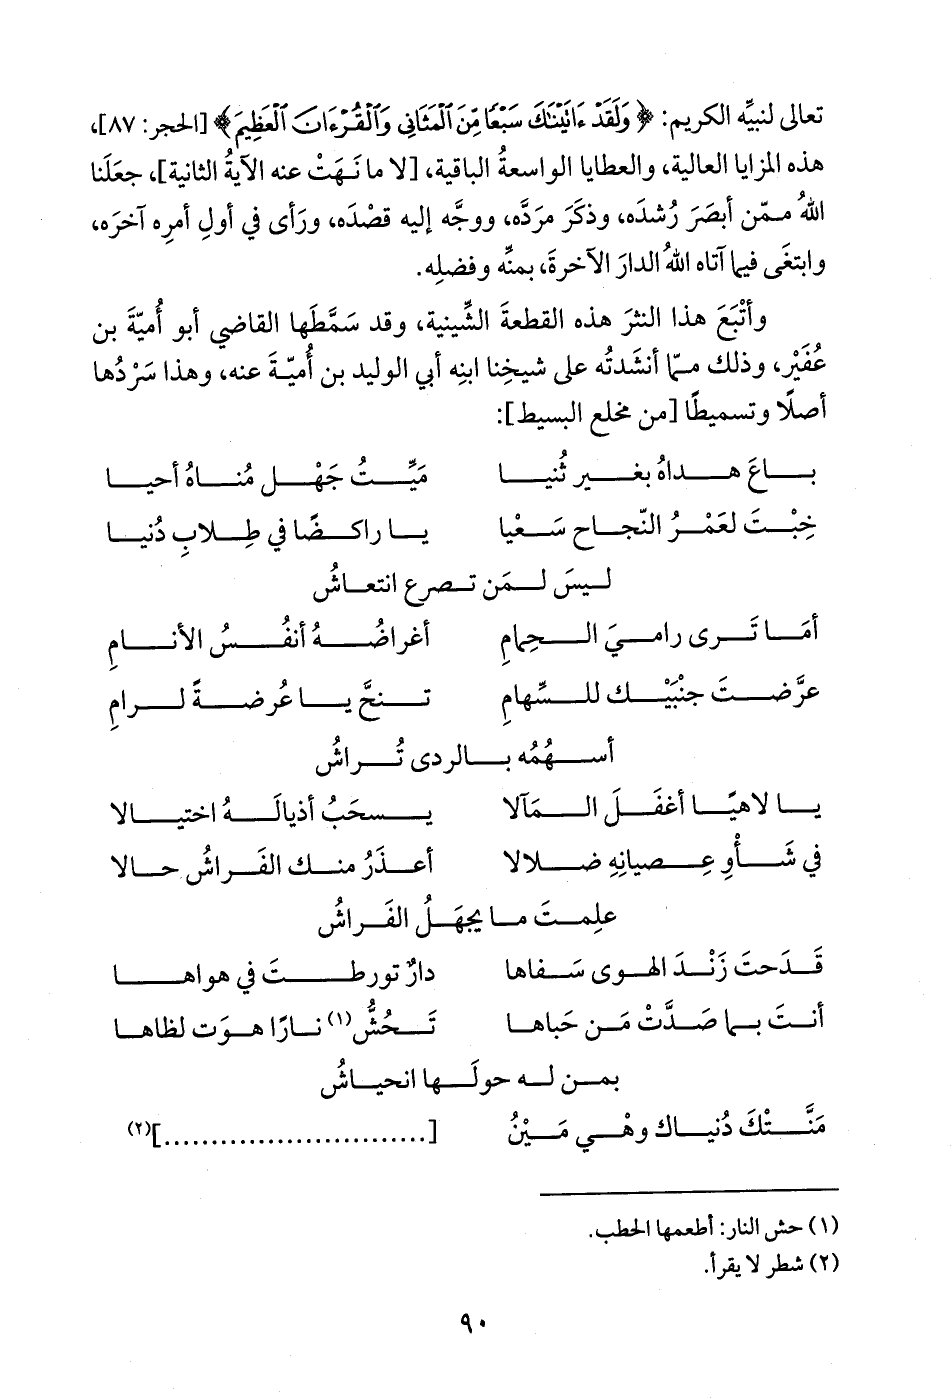 تعالى لنبيِّه الكريم: ﴿وَلَقَدْ ءَاتَيْنَاكَ سَبْعًا مِّنَ ٱلْمَثَانِي وَٱلْقُرْءَانَ ٱلْعَظِيمَ﴾ [الحجر: ٨٧]،
هذه المزايا العالية، والعطايا الواسعةُ الباقية، [لا ما نَهَتْ عنه الآيةُ الثانية]، جعلَنا
اللهُ ممّن أبصَرَ رُشدَه، وذكَرَ مَرَدَّه، ووجَّه إليه قصْدَه، ورَأى في أولِ أمرِه آخرَه،
وابتغَى فيما آتاه اللهُ الدارَ الآخرةَ، بمنِّه وفضلِه.
وأتْبَعَ هذا النثرَ هذه القطعةَ الشِّينية، وقد سَمَّطَها القاضي أبو أُميّةَ بن
عُفَيْر، وذلك ممّا أنشَدتُه على شيخِنا ابنِه أبي الوليد بن أُميّةَ عنه، وهذا سَرْدُها
أصلًا وتسميطًا [من مخلع البسيط]:
بـاعَ هـداهُ بغيـر ثُنيـا مَيِّـتُ جَهْـل مُنـاهُ أحيـا
خِبْـتَ لعَمْـرُ النّجـاح سَـعْيا يـا راكـضًا في طِـلابِ دُنيـا
ليـسَ لـمَن تـصرع انتعـاشُ
أمَـا تَـرى راميَ الـحِمامِ أغراضُـهُ أنفُـسُ الأنـامِ
عرَّضـتَ جنْبَيْـك للـسِّهامِ تـنحَّ يـا عُرضـةً لـرامِ
أسـهُمُه بـالردى تُـراشُ
يـا لاهيًـا أغفَـلَ الـمَآلا يـسحَبُ أذيالَـهُ اختيـالا
في شَـأْوِ عِـصيانِهِ ضـلالا أعـذَرُ منـك الفَـراشُ حـالا
علِمـتَ مـا يجهَـلُ الفَـراشُ
قَـدَحتَ زَنْـدَ الهوى سَـفاها دارٌ تورطـتَ في هواهـا
أنـتَ بمـا صَـدَّتْ مَـن حَباهـا تَـحُشُّ (١) نـارًا هـوَت لظاهـا
بمـن لـه حولَـها انحيـاشُ
مَنَّـتْكَ دُنيـاك وهْـي مَـيْنُ [...........................](٢)
(١) حش النار: أطعمها الحطب.
(٢) شطر لا يقرأ.
٩٠